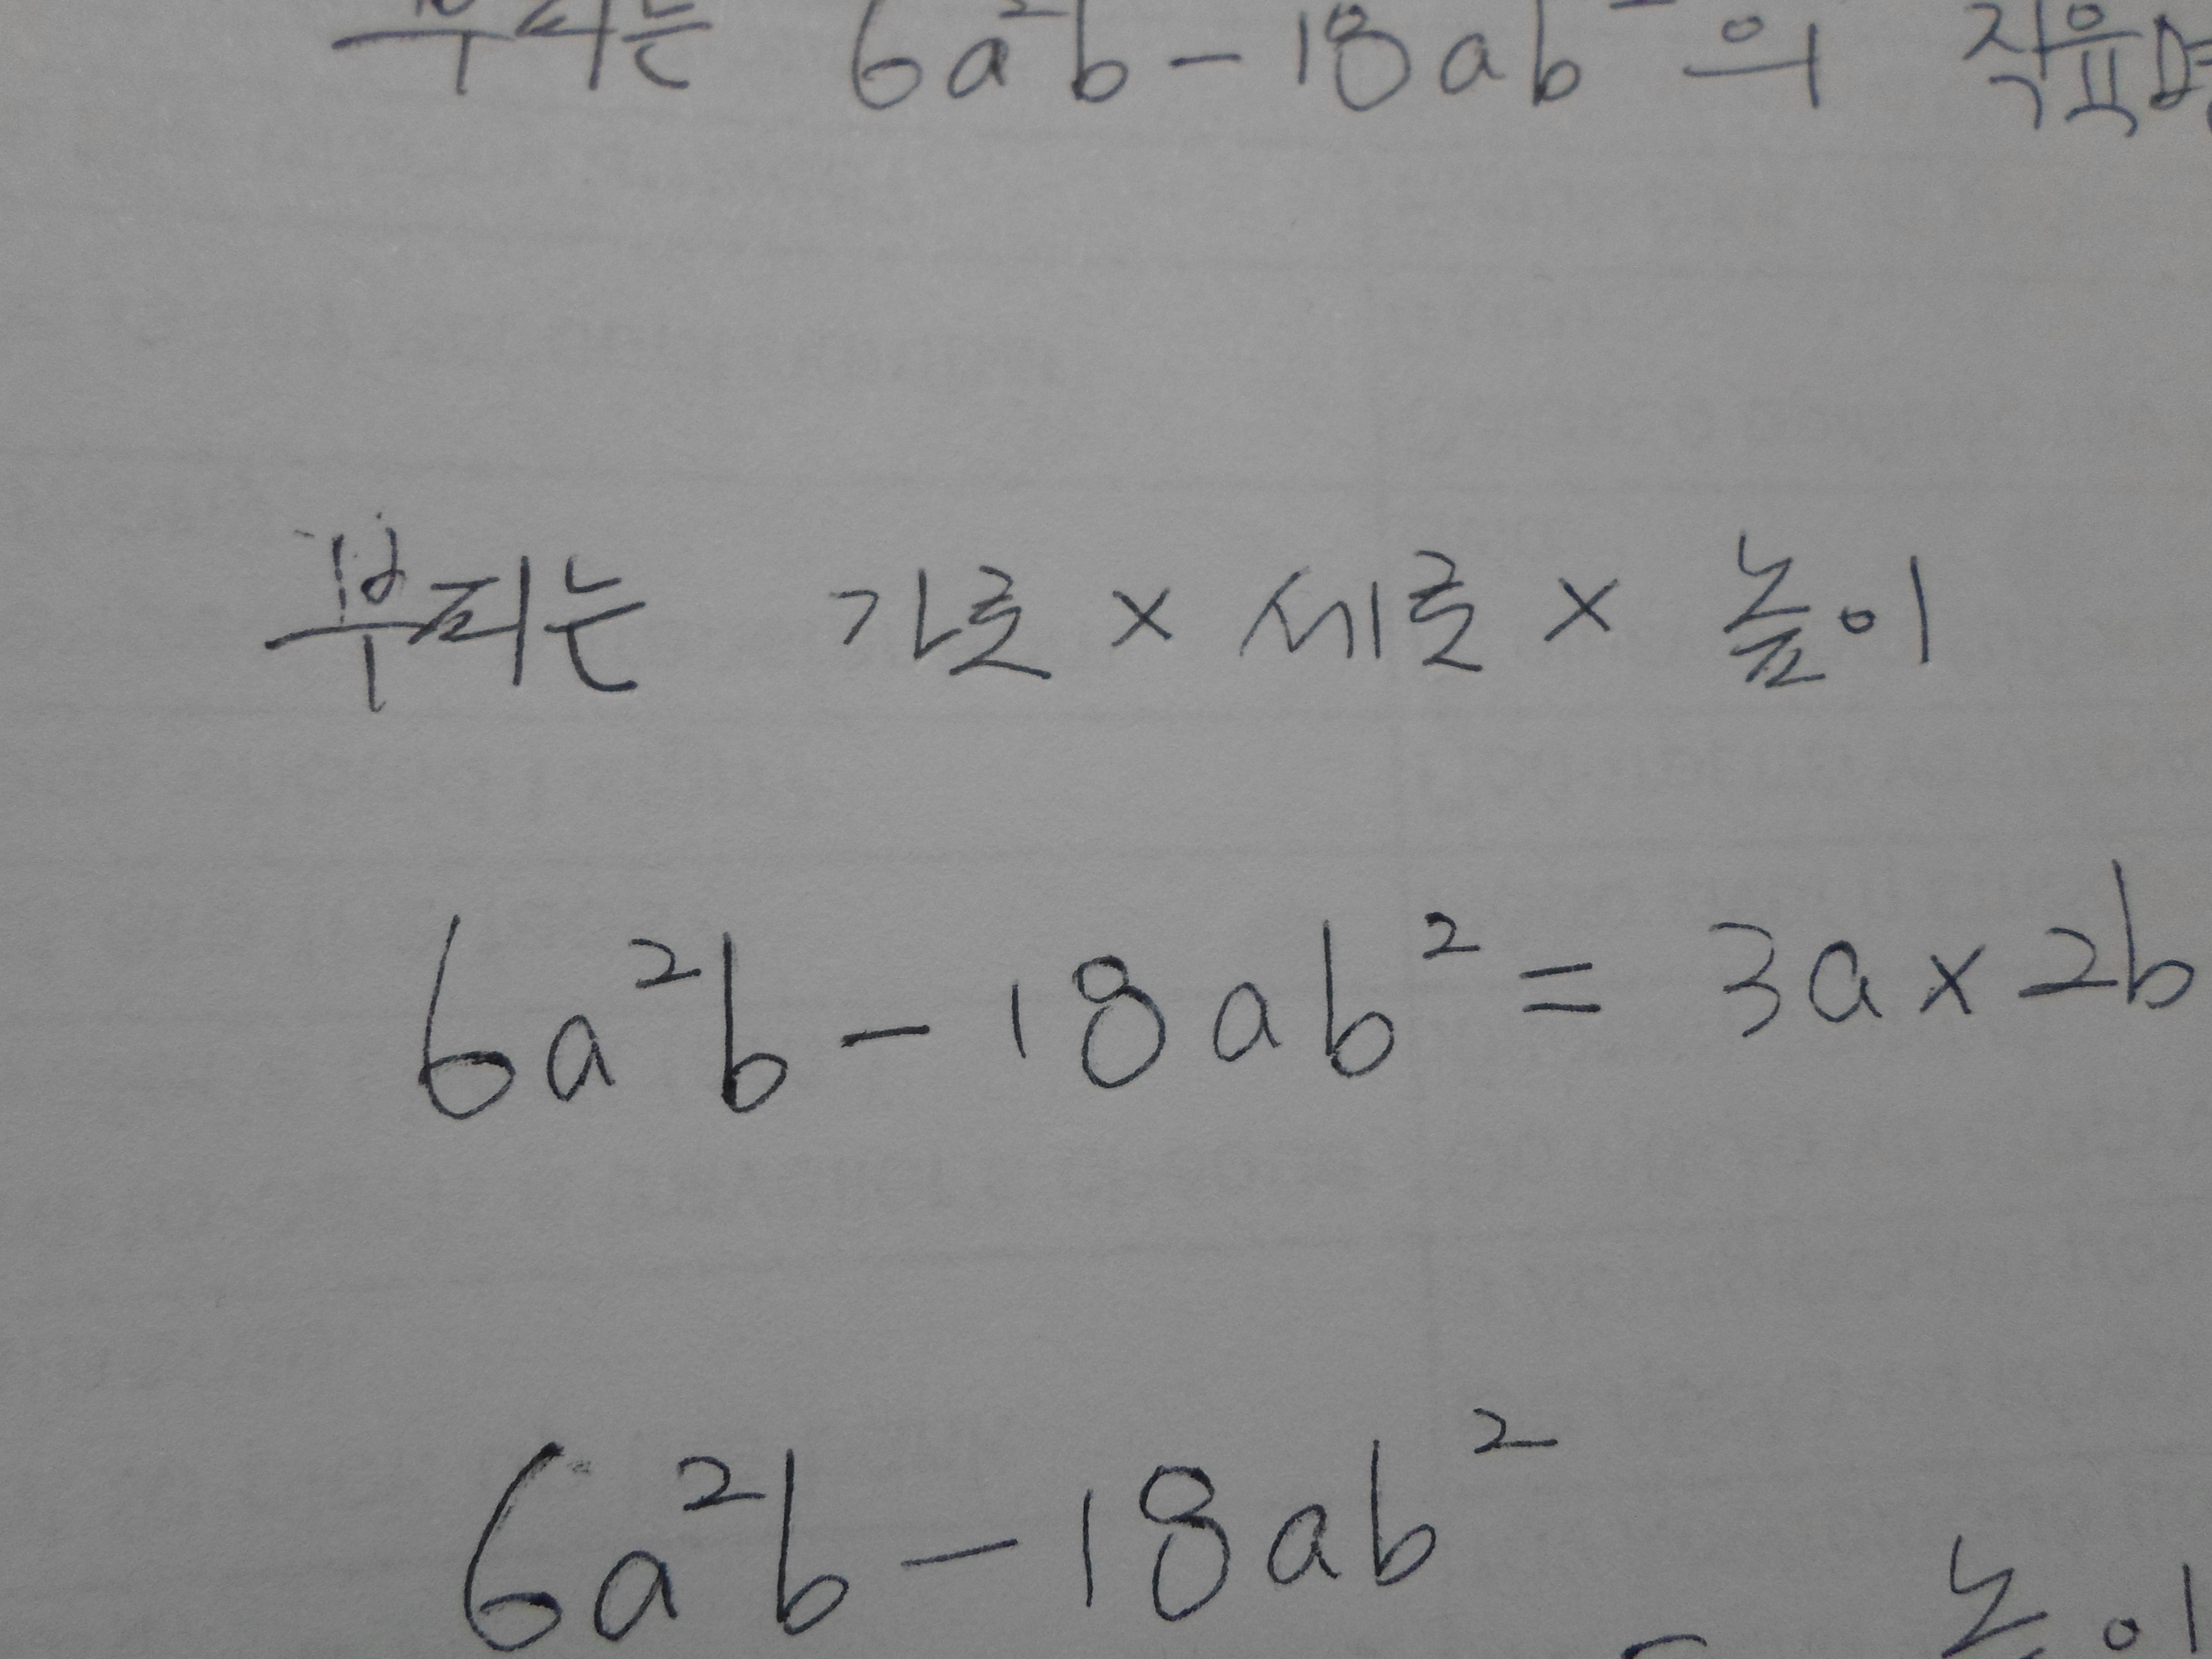 부피는 6a²b - 18ab² 의 직육면
부피는 가로 × 세로 × 높이
6a²b - 18ab² = 3a × 2b
6a²b - 18ab²